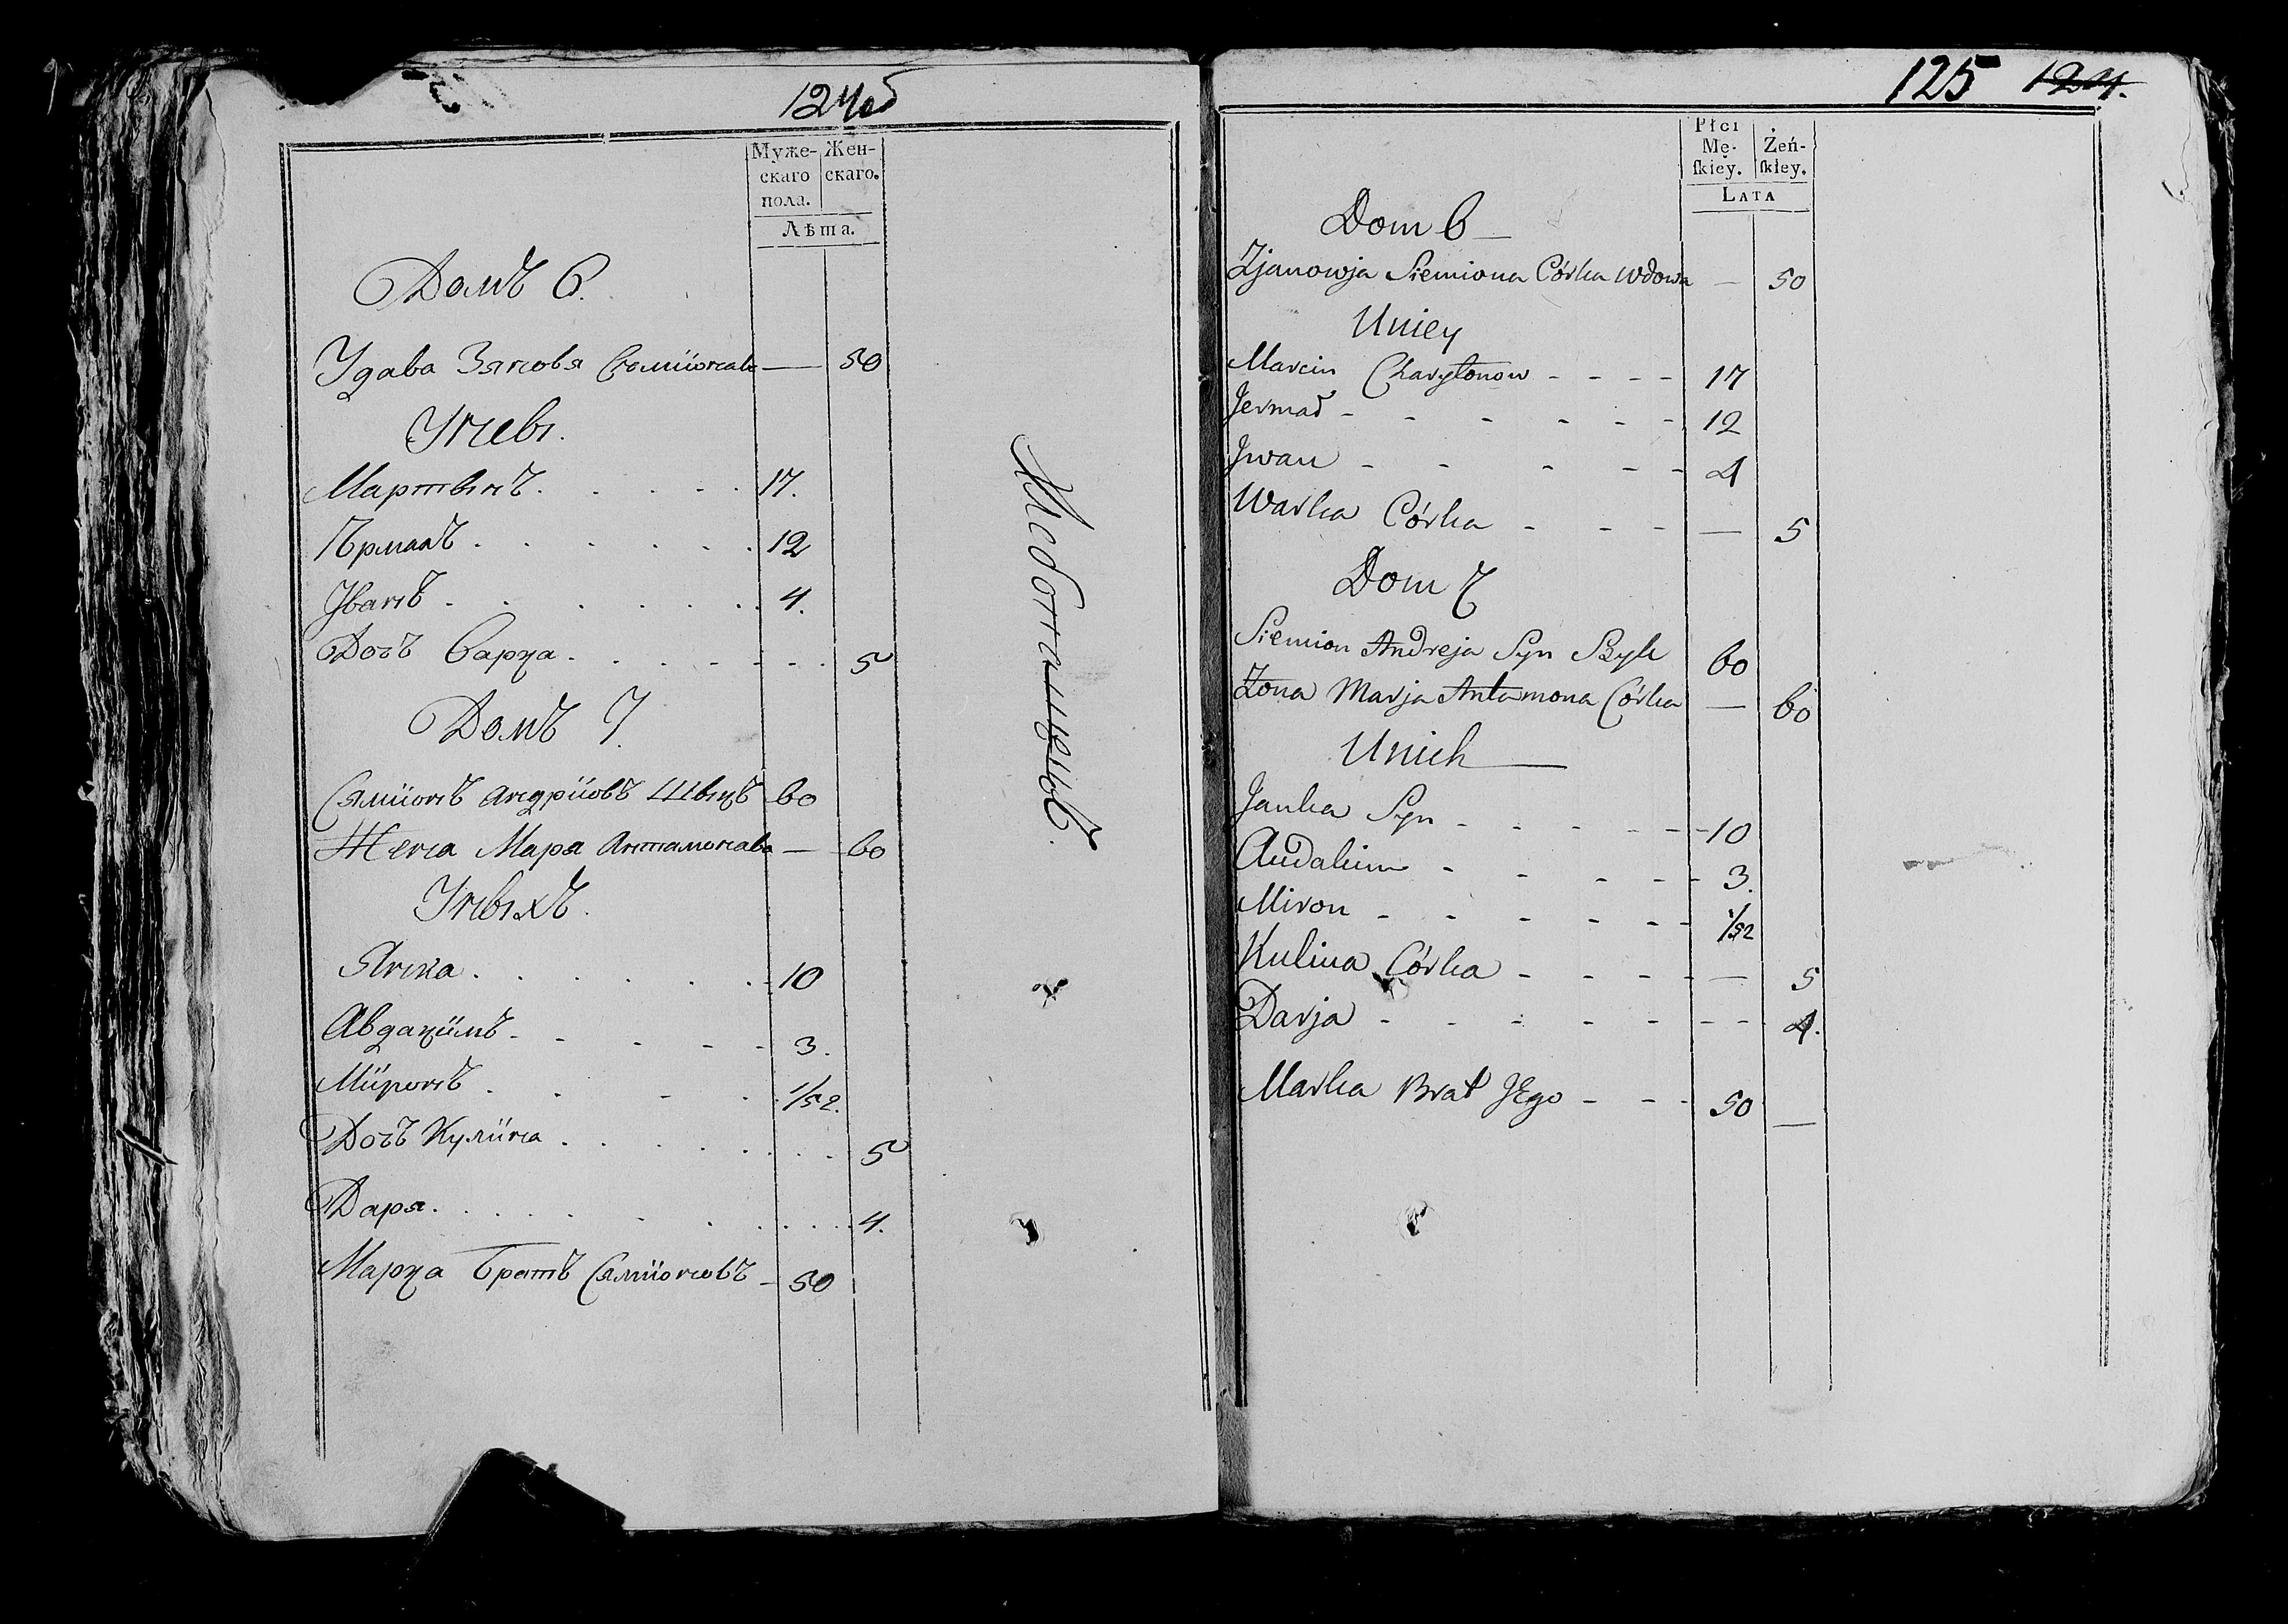 124об
Муже-
скаго
пола.
Жен-
скаго.
Лѣта.
Домъ 6.
Удава Зяновя Сямiонава — 50
У нея.
Мартынъ. 17.
Ярмалъ 12
Иванъ 4.
Дочъ Варка 5
Домъ 7.
Сямiонъ Андрiовъ 60
Жена Маря Антамонава — 60
У ныхъ.
Янка 10
Авдакiмъ 3.
Мiронъ 1/52.
Дочъ Кулiна 5
Даря. 4.
Марка братъ Сямiоновъ 50
125 124.
Płci
Mę-
ſkiey.
Żeń-
ſkiey.
Lata
Dom 6
Zjanowja Siemiona Córka wdowa — 50
Uniey
Marcin Charytonow 17
Jermał 12
Jwan 4
Warka Córka — 5
Dom 7
Siemion Andreja Syn 60
Żona Marja Antamona Córka — 60
Unich
Janka Syn 10
Audakim 3.
Miron 1/52
Kulina Córka — 5
Darja 4.
Marka Brat JEgo 50 —